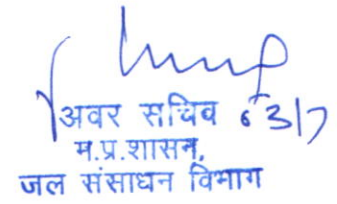 अवर सचिव
म.प्र.शासन,
जल संसाधन विभाग